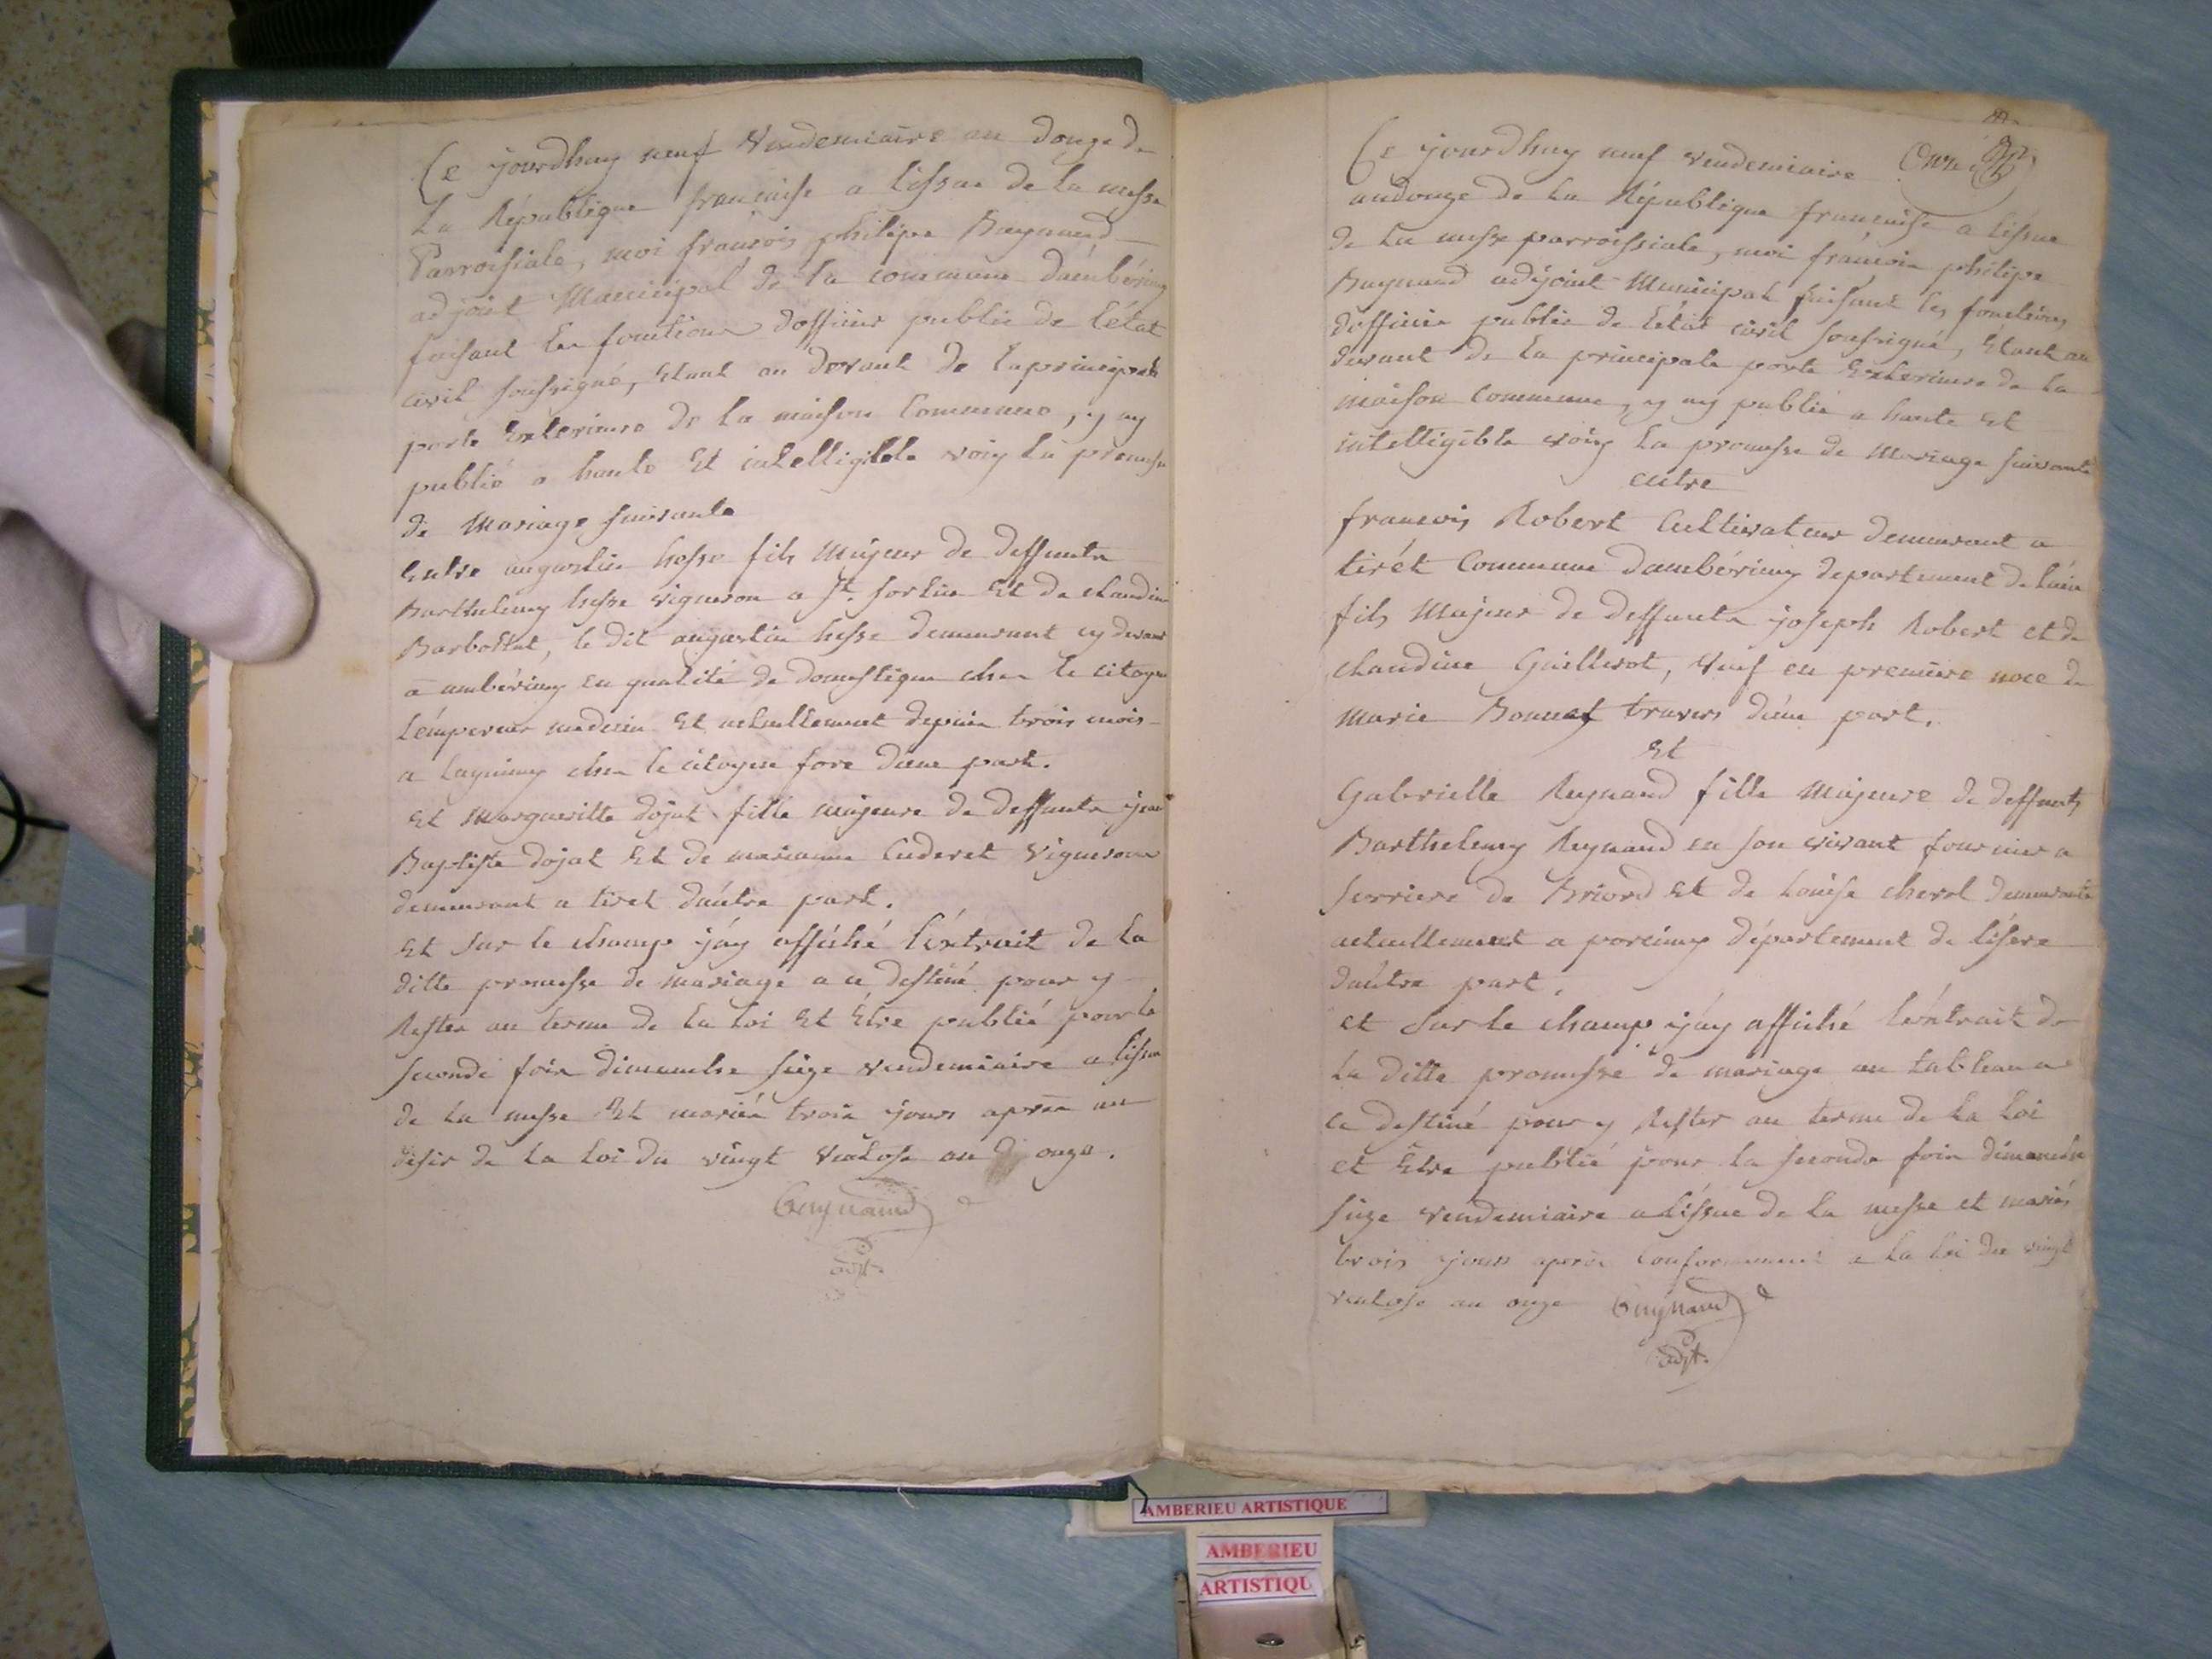 Ce jourdhuy neuf Vendemiaire an douze de
La République francaise a lissue de la messe
Parroissiale, moi francois philipe Baynaud
adjoint Municipal de la commune dambérieux
faisant les fonctions dofficier public de létat
civil soussigné, Etant au devant de la principale
porte Exterieure de la maison Commune, y ay
publié a haute Et intelligible voix la promesse
de Mariage suivante
Entre augustin hesse fils Majeur de deffunts
Barthelemy hesse vigneron a St. sorlin Et de claudine
Barbottat, le dit augustin hesse demeurant cy devant
a ambérieux en qualité de domestique chez le citoyen
Lémpereur medecin Et actuellement depuis trois mois
a Lagnieux chez le citoyen fore dúne part.
Et Margueritte dojat fille majeure de deffunts jean
Baptiste dojat Et de marianne Cuderet Vigneron
demeurant a tiret dáutre part.
Et sur le champ jáy affiché léxtrait de la
ditte promesse de mariage a ce destiné pour y
Rester au terme de la loi Et Être publié pour la
seconde fois dimanche seize vendemiaire a lissue
de la messe Et mariés trois jours après au
désir de la loi du vingt Ventose an onze.
adjt.
Ce jourdhuy neuf vendemiaire Onze
an douze de la République francaise a lissue
de la messe parroissiale, moi francois philipe
Baynaud adjoint Municipal faisant les fonctions
dofficier public de létat civil soussigné, Etant au
devant de la principale porte Exterieure de la
maison Commune, y ay publié a haute Et
intelligible voix la promesse de Mariage suivante
entre
francois Robert Cultivateur demeurant a
tirét Commune dambérieux departement de láin
fils Majeur de deffunts joseph Robert et de
claudine Guillerot, Veuf en premiere noce de
marie Bonnet travers dúne part.
Et
Gabrielle Reynaud fille Majeure de deffunts
Barthelemy Reynaud en son vivant fournier a
serriere de Briord Et de Louise cherel demeurante
actuellement a porcieux département de lisere
dáutre part.
et sur le champ jáy affiché léxtrait de
la ditte promesse de mariage au tableau a
ce destiné pour y Rester au terme de la loi
et Être publié pour la seconde fois dimanche
seize vendemiaire a líssue de la messe et mariés
trois jours après Conformement a la loi du vingt
ventose an onze
adjt.
AMBERIEU ARTISTIQUE
AMBERIEU
ARTISTIQU